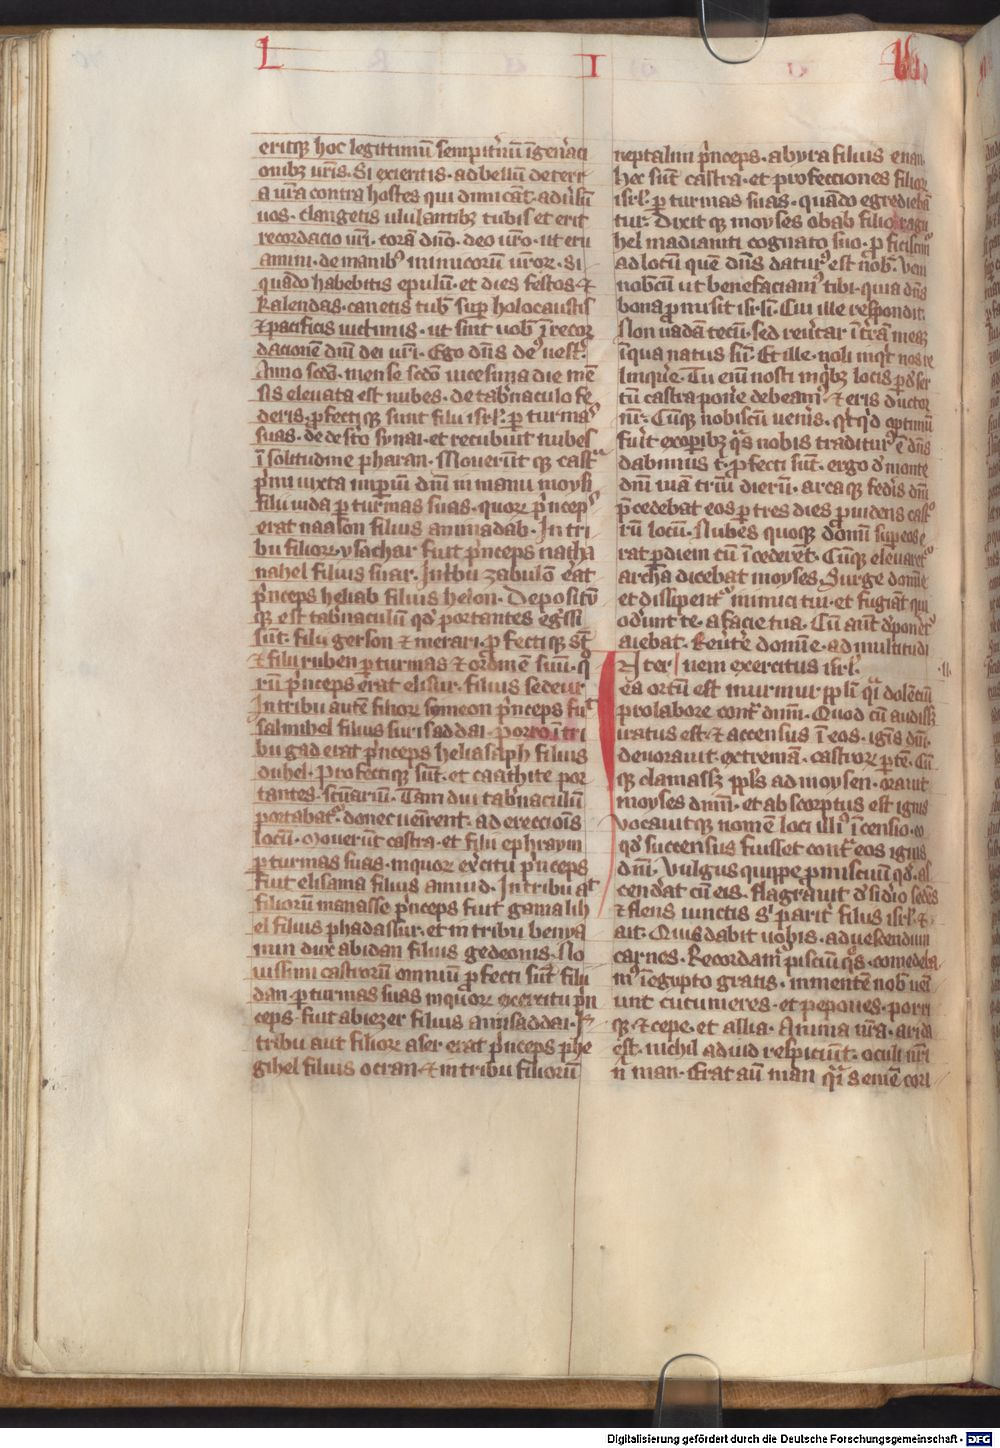 L I Ub
eritq̄ hoc legittimū sempit̄nū īgen̄aci
onibꝫ ur̄is. Si exieritis. ad bellū de terr
a ur̄a contra hostes qui dimicāt. adūsū
uos. clangetis ululantibꝫ tubis et erit
recordacio ur̄i. corā dn̄o. deo ur̄o. ut eru
amini. de manibꝰ inimicorū ur̄oꝝ. Si
quādo habebitis epulū. et dies festos. ⁊
kalendas. canetis tubꝭ suꝑ holocaustis
⁊ pacificis uictimis. ut sint uobꝭ ī recor
dacionē dn̄i dei ur̄i. Ego dn̄s deꝰ uest̄.
Anno scd̄o. mense scd̄o uicesima die mē
sis eleuata est nubes. de tab̄naculo fe
deris. ꝓfectiqꝫ sunt filii isr̄l. ꝑ turmas
suas. de des̄to synai. et recubuit nubes
ī solitudine pharan. Mouer̄ūt qꝫ cast̄ᵃ
p̄mi iuxta imp̄iū dn̄i in manu moysi
filii iuda ꝑ turmas suas. quoꝝ p̄ncepˢ
erat naason filius aminadab. In tri
bu filioꝝ ysachar fuit p̄nceps natha
nahel filius suar. In tbu zabulō er̄at
p̄nceps heliab filius helon. Depositū
qꝫ est tab̄naculū qd̄ portantes eḡssi
sūt. filii gerson ⁊ merari. ꝓfectiqꝫ sūt
⁊ filii ruben ꝑ turmas ⁊ ordinē suū. qͦ
rū p̄nceps erat elisur. filius sedeur
In tribu autē filioꝝ symeon p̄nceps fuᵗ
salmihel filius surisaddai. porro ī tri
bu gad erat p̄nceps heliasaph filius
duhel. Profectiqꝫ sūt. et caathite por
tantes. sc̄uariū. Tam diu tab̄naculū
portabatᵘ. donec ueīrent. ad ereccioīs
locū. Mouer̄ūt castra. et filii ephraym
ꝑ turmas suas. in quoꝝ ex̄citu p̄nceps
fuit elisama filius amiud. In tribu aᵗ
filiorū manasse p̄nceps fuit gamalih
el filius phadassur. et in tribu benya
min dux abidan filius gedeonis. No
uissimi castrorū omniū ꝓfecti sūt filii
dan. ꝑ turmas suas in quoꝝ exercitu p̄n
ceps. fuit abiezer filius amisaddai. In
tribu aut filioꝝ aser erat p̄nceps phe
gihel filius ocran. ⁊ in tribu filiorū
neptalim p̄nceps. abyra filius enan.
hec sūt castra. et profecciones filioꝝ
isr̄l. ꝑ turmas suas. quādo egrediebā
tur. Dixit qꝫ moyses obab filio ragu
hel madianiti cognato suo. ꝓficiscimꝰ
ad locū quē dn̄s daturꝰ est nob̄. Veni
nobcū ut benefaciamꝰ tibi. quia dn̄s
bona ꝓmisit isr̄li. Cui ille respondit.
Non uadā tecū. sed reūtar ī trā meaꝫ
ī qua natus sū. Et ille. noli inqͥt nos re
linq̄re. Tu eni nosti in qͥbꝫ locis ꝑ d̄ser
tū castra pon̄e debeamꝰ. ⁊ eris ductor
nr̄. Cūqꝫ nobiscū uenīs. qͥtqͥd optimū
fūit ex opibꝫ qͣs nobis traditurꝰ ē dn̄s
dabimus tͥ. ꝓfecti sūt. ergo d̄ monte
dn̄i uiā triū dierū. arcaqꝫ fed̄is dn̄i
p̄cedebat eos ꝑ tres dies ꝓuidens castͦ
rū locū. Nubes quoqꝫ domī suꝑ eos e
rat ꝑ diem cū īcederēt. Cūqꝫ eleuaretᵘ
archa dicebat moyses. Surge domīe
et dissipentᵘ inimici tui. et fugiāt qui
od̄unt te. a facie tua. Cū aūt d̄ponēt̄ᵘ
aiebat. Reūt̄e domīe. ad multitudi
Iter nem exercitus isr̄l. .II.
ea ortū est murmur ppl̄i qͣi dolenciū
pro labore contᵃ dn̄m. Quod cū audissꝫ
iratus est. ⁊ accensus ī eos. ignis dn̄i.
deuorauit extremā. castroꝝ ꝑtē. Cū
qꝫ clamassꝫ ppl̄s ad moysen. orauit
moyses dn̄m. et abscorptus est ignis
vocauitqꝫ nomē loci illiꝰ īcensio. eo
qd̄ succensus fuisset contᵃ eos ignis
dn̄i. Vulgus quippe ꝓmiscuū qd̄. as
cendāt cū eis. flagrāuit d̄sid̄io sedēs
⁊ flens iunctis sͥ parit̄ filiis isr̄l. ⁊
ait. Quis dabit uobis. ad uescendum
carnes. Recordamᵘ pisciū qͦs. comedeba
mꝰ ī egypto gratis. in mentē nob̄ ueī
unt cucumeres. et pepones. porri
qꝫ. ⁊ cepe. et allia. Anima nr̄a. arida
est. nichil aduid respiciūt. oculi nr̄i
n̄ man. Erat aū man qͣi semē cori
Digitalisierung gefördert durch die Deutsche Forschungsgemeinschaft - DFG